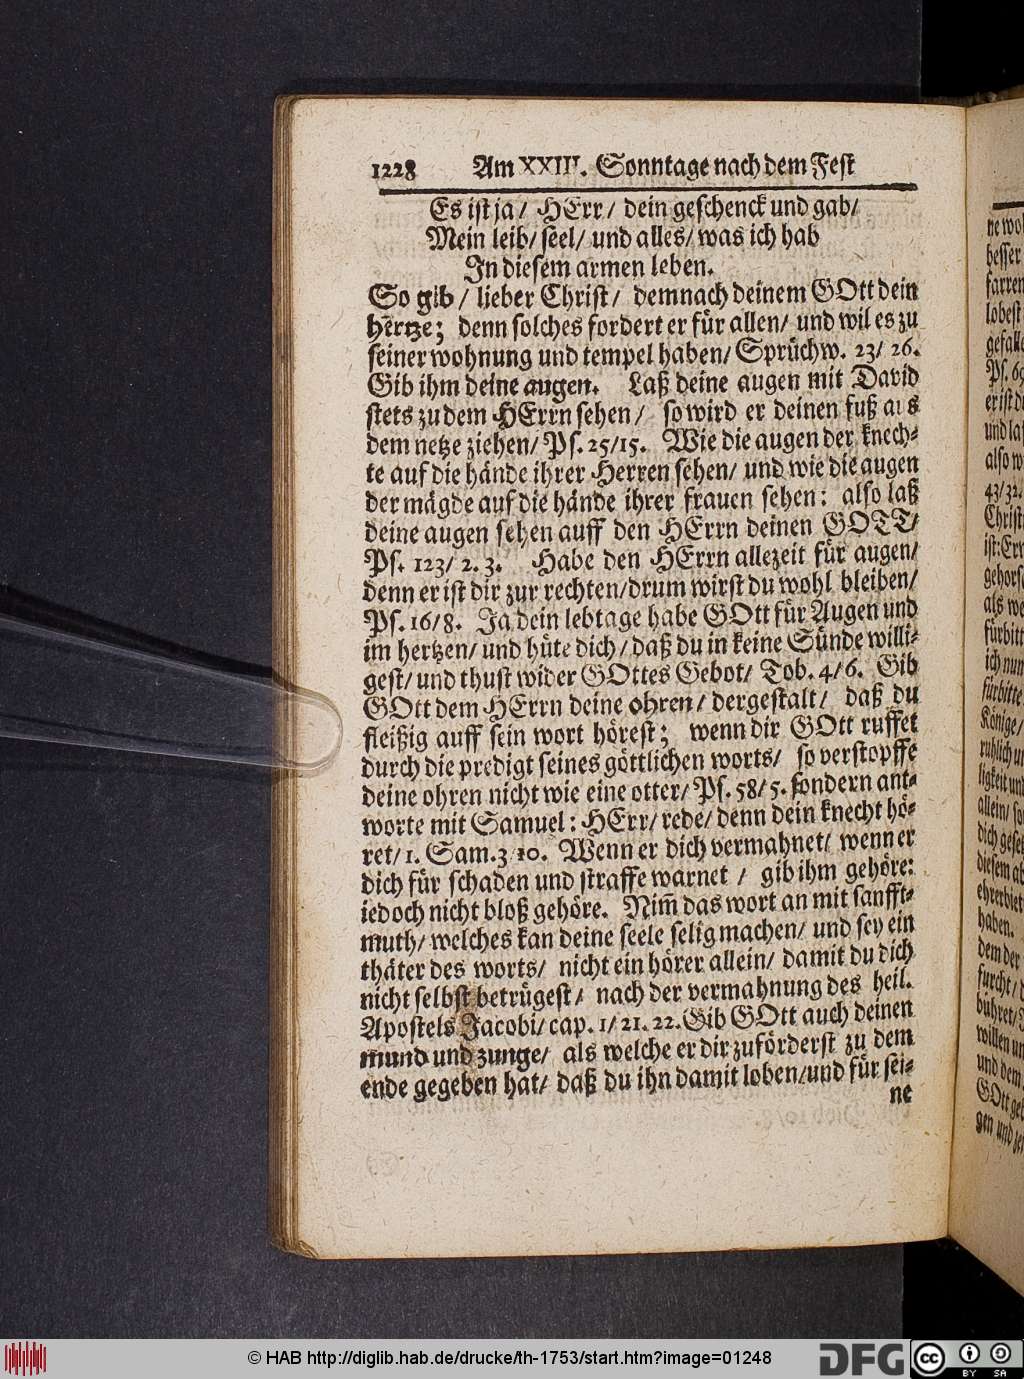 1228 Am XXIII. Sonntage nach dem Fest
Es ist ja / HErr / dein geschenck und gab /
Mein leib / seel / und alles / was ich hab
In diesem armen leben.
So gib / lieber Christ / demnach deinem GOtt dein
hertze; denn solches fordert er für allen / und wil es zu
seiner wohnung und tempel haben / Sprüchw. 23 / 26.
Gib ihm deine augen. Laß deine augen mit David
stets zu dem HErrn sehen / so wird er deinen fuß aus
dem netze ziehen / Ps. 25 / 15. Wie die augen der knech-
te auf die hände ihrer Herren sehen / und wie die augen
der mägde auf die hände ihrer frauen sehen: also laß
deine augen sehen auff den HErrn deinen GOTT /
Ps. 123 / 2. 3. Habe den HErrn allezeit für augen /
denn er ist dir zur rechten / drum wirst du wohl bleiben /
Ps. 16 / 8. Ja dein lebtage habe GOtt für Augen und
im hertzen / und hüte dich / daß du in keine Sünde willi-
gest / und thust wider GOttes Gebot / Tob. 4 / 6. Gib
GOtt dem HErrn deine ohren / dergestalt / daß du
fleißig auff sein wort hörest; wenn dir GOtt ruffet
durch die predigt seines göttlichen worts / so verstopffe
deine ohren nicht wie eine otter / Ps. 58 / 5. sondern ant-
worte mit Samuel: HErr / rede / denn dein knecht hö-
ret / 1. Sam. 3 10. Wenn er dich vermahnet / wenn er
dich für schaden und straffe warnet / gib ihm gehöre:
iedoch nicht bloß gehöre. Nim̃ das wort an mit sanfft-
muth / welches kan deine seele selig machen / und sey ein
thäter des worts / nicht ein hörer allein / damit du dich
nicht selbst betrügest / nach der vermahnung des heil.
Apostels Jacobi / cap. 1 / 21. 22. Gib GOtt auch deinen
mund und zunge / als welche er dir zuförderst zu dem
ende gegeben hat / daß du ihn damit loben / und für sei-
ne
© HAB http://diglib.hab.de/drucke/th-1753/start.htm?image=01248
DFG
cc BY SA